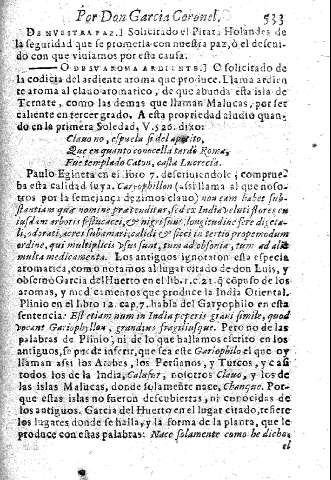 Por Don Garcia Coronel. 533
DE NVESTRA PAZ.] Solicitado el Pirata Holandes de
la seguridad que se prometia con nuestra paz, ò el descui-
do con que viuiamos por esta causa.
O DESV AROMA ARDIENTE.] O solicitado de
la codicia del ardiente aroma que produce. Llama ardien
te aroma al clauo aromatico, de que abunda esta isla de
Ternate, como las demas que llaman Malucas, por ser
caliente en tercer grado. A esta propriedad aludio quan-
do en la primera Soledad, V. 526. dixo:
Clauo no, espuela si del apetito,
Que en quanto conocella tardò Roma,
Fue templado Caton, casta Lucrecia.
Paulo Egineta en el libro 7. descriuiendole; comprue-
ba esta calidad suya. Caryophillon (assi llama al que noso-
tros por la semejança dezimos clauo) non eam habet sub-
stantiam qua nomine prætenditur, sed ex India veluti flores cu
iusdam arboris festucacei, & nigri sunt, longitudine ferè digita-
li, odorati, acres subamari, calidi & sicci in tertio propemodum
ordine, qui multiplicis vsus sunt, tum ad obsonia, tum ad alia
multa medicamenta. Los antiguos ignoraron esta especia
aromatica, como notamos al lugar citado de don Luis, y
obseruò Garcia del Huerto en el lib. 1. c. 21. q̃ cõpuso de los
aromas, y medicamentos que produce la India Oriental.
Plinio en el libro 12. cap. 7. habla del Garyophilo en esta
sentencia: Est etiam num in India piperis grani simile, quod
vocant Gariophyllon, grandius fragiliusque. Pero no de las
palabras de Plinio, ni de lo que hallamos escrito en los
antiguos, se puede inferir, que sea este Gariophilo el que oy
llaman assi los Arabes, los Persianos, y Turcos, y casi
todos los de la India, Calafur, nosotros Clauo, y los de
las islas Malucas, donde solamente nace, Chanque. Por-
que estas islas no fueron descubiertas, ni conocidas de
los antiguos. Garcia del Huerto en el lugar citado, refiere
los lugares donde se halla, y la forma de la planta, que le
produce con estas palabras: Nace solamente como he dicho,
el